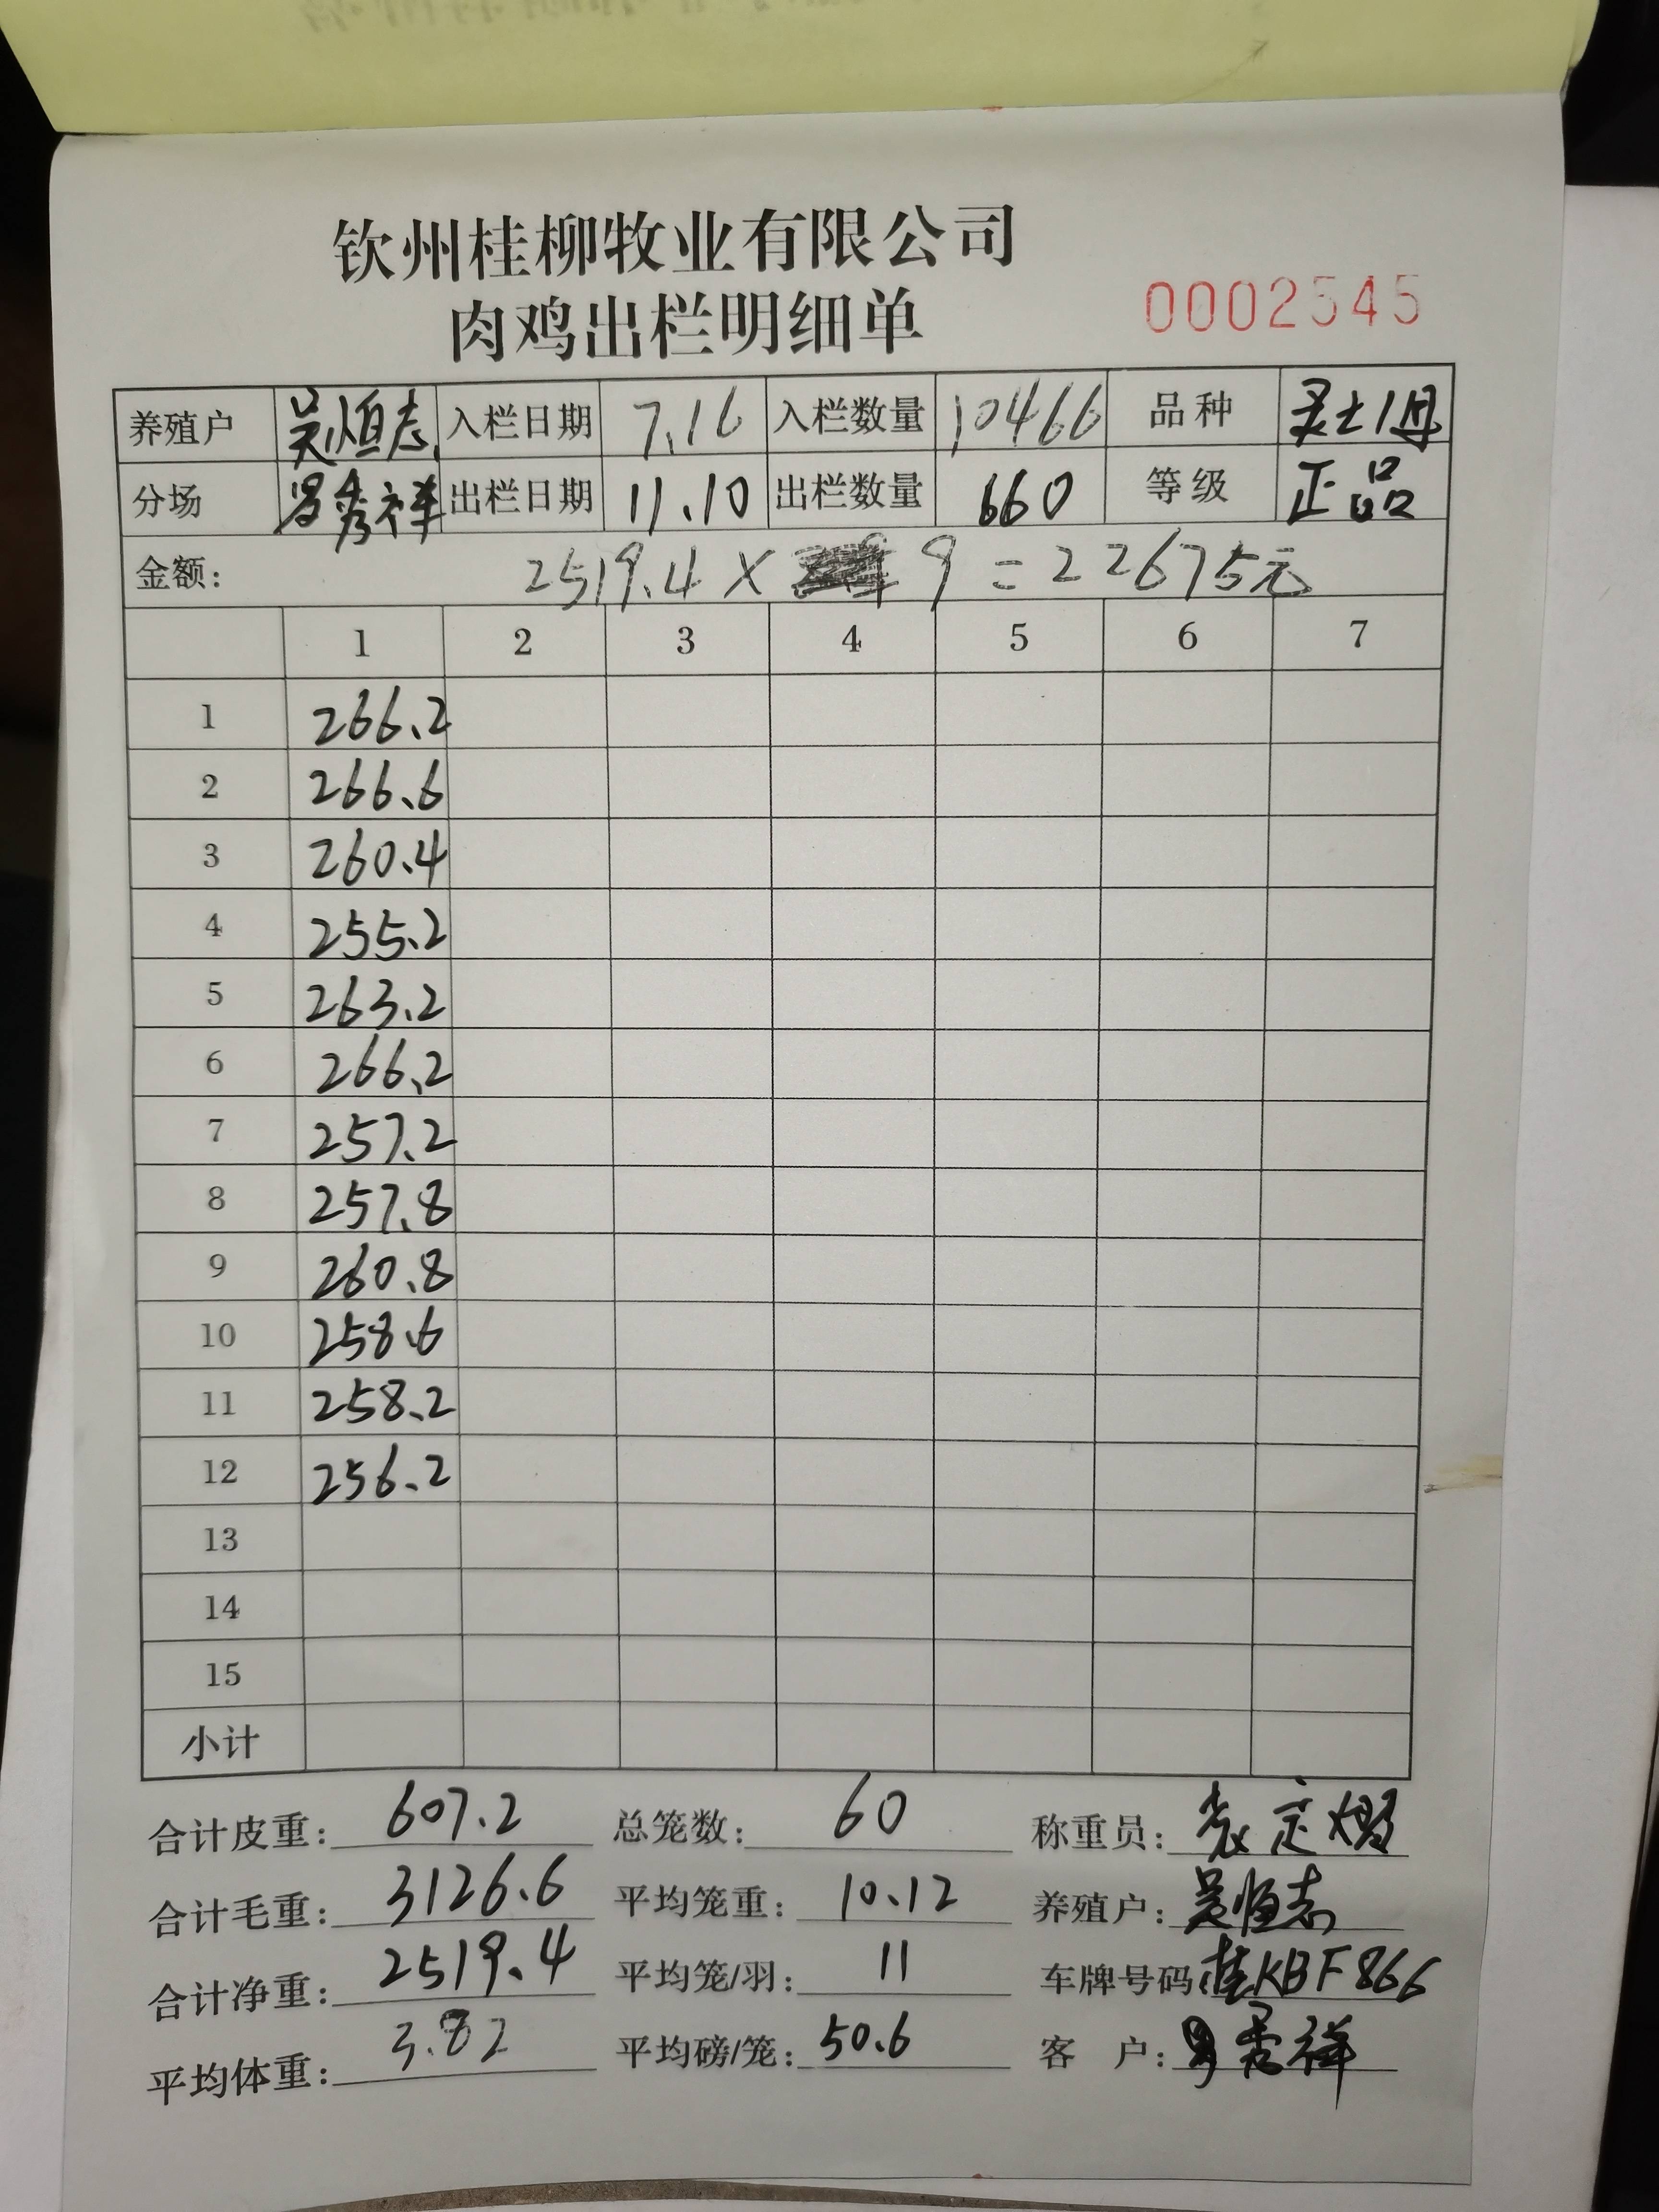 钦州桂柳牧业有限公司
肉鸡出栏明细单
0002545
养殖户 吴恒志 入栏日期 7.16 入栏数量 10466 品种 灵土1母
分场 秀祥 出栏日期 11.10 出栏数量 660 等级 正品
金额: 2519.4 × 9 = 22675元
1 2 3 4 5 6 7
1 266.2
2 266.6
3 260.4
4 255.2
5 263.2
6 266.2
7 257.2
8 257.8
9 260.8
10 258.6
11 258.2
12 256.2
13
14
15
小计
合计皮重: 607.2 总笼数: 60 称重员: 定
合计毛重: 3126.6 平均笼重: 10.12 养殖户: 吴恒志
合计净重: 2519.4 平均笼/羽: 11 车牌号码: 桂KBF866
平均体重: 3.82 平均磅/笼: 50.6 客户: 秀祥